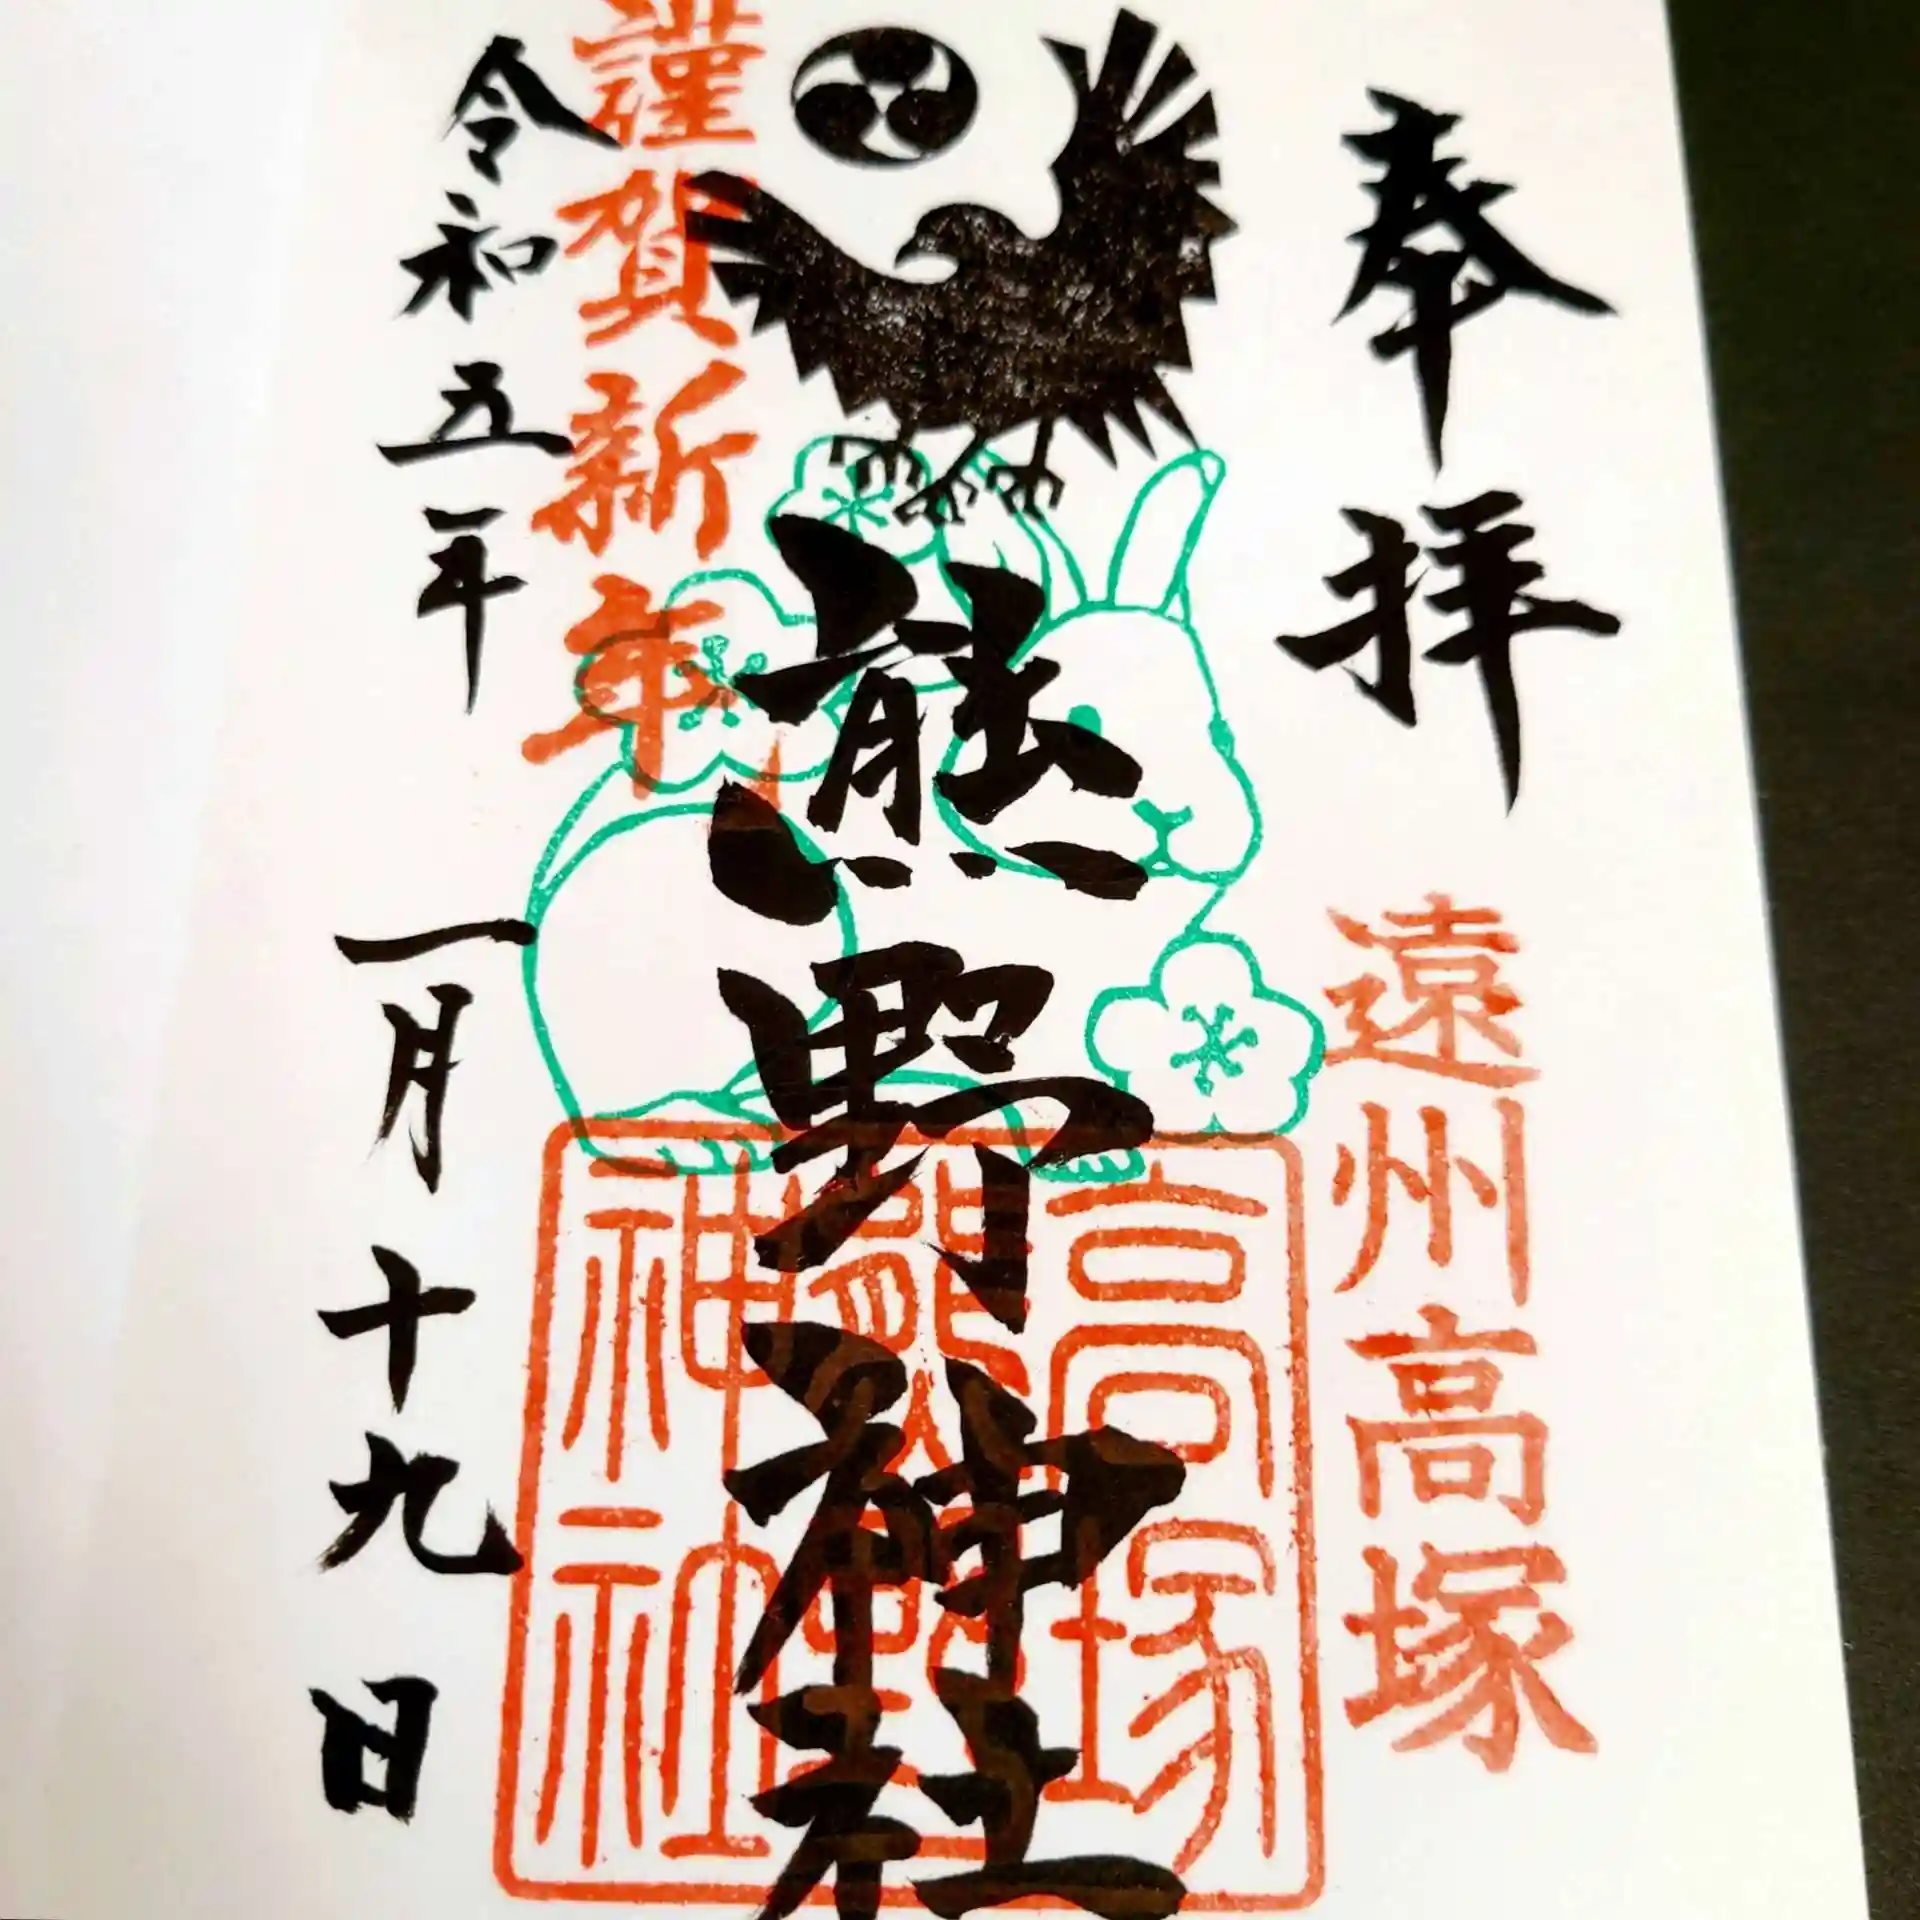 奉拝
遠州高塚
熊野神社
高塚
熊野
神社
謹賀新年
令和五年
一月十九日